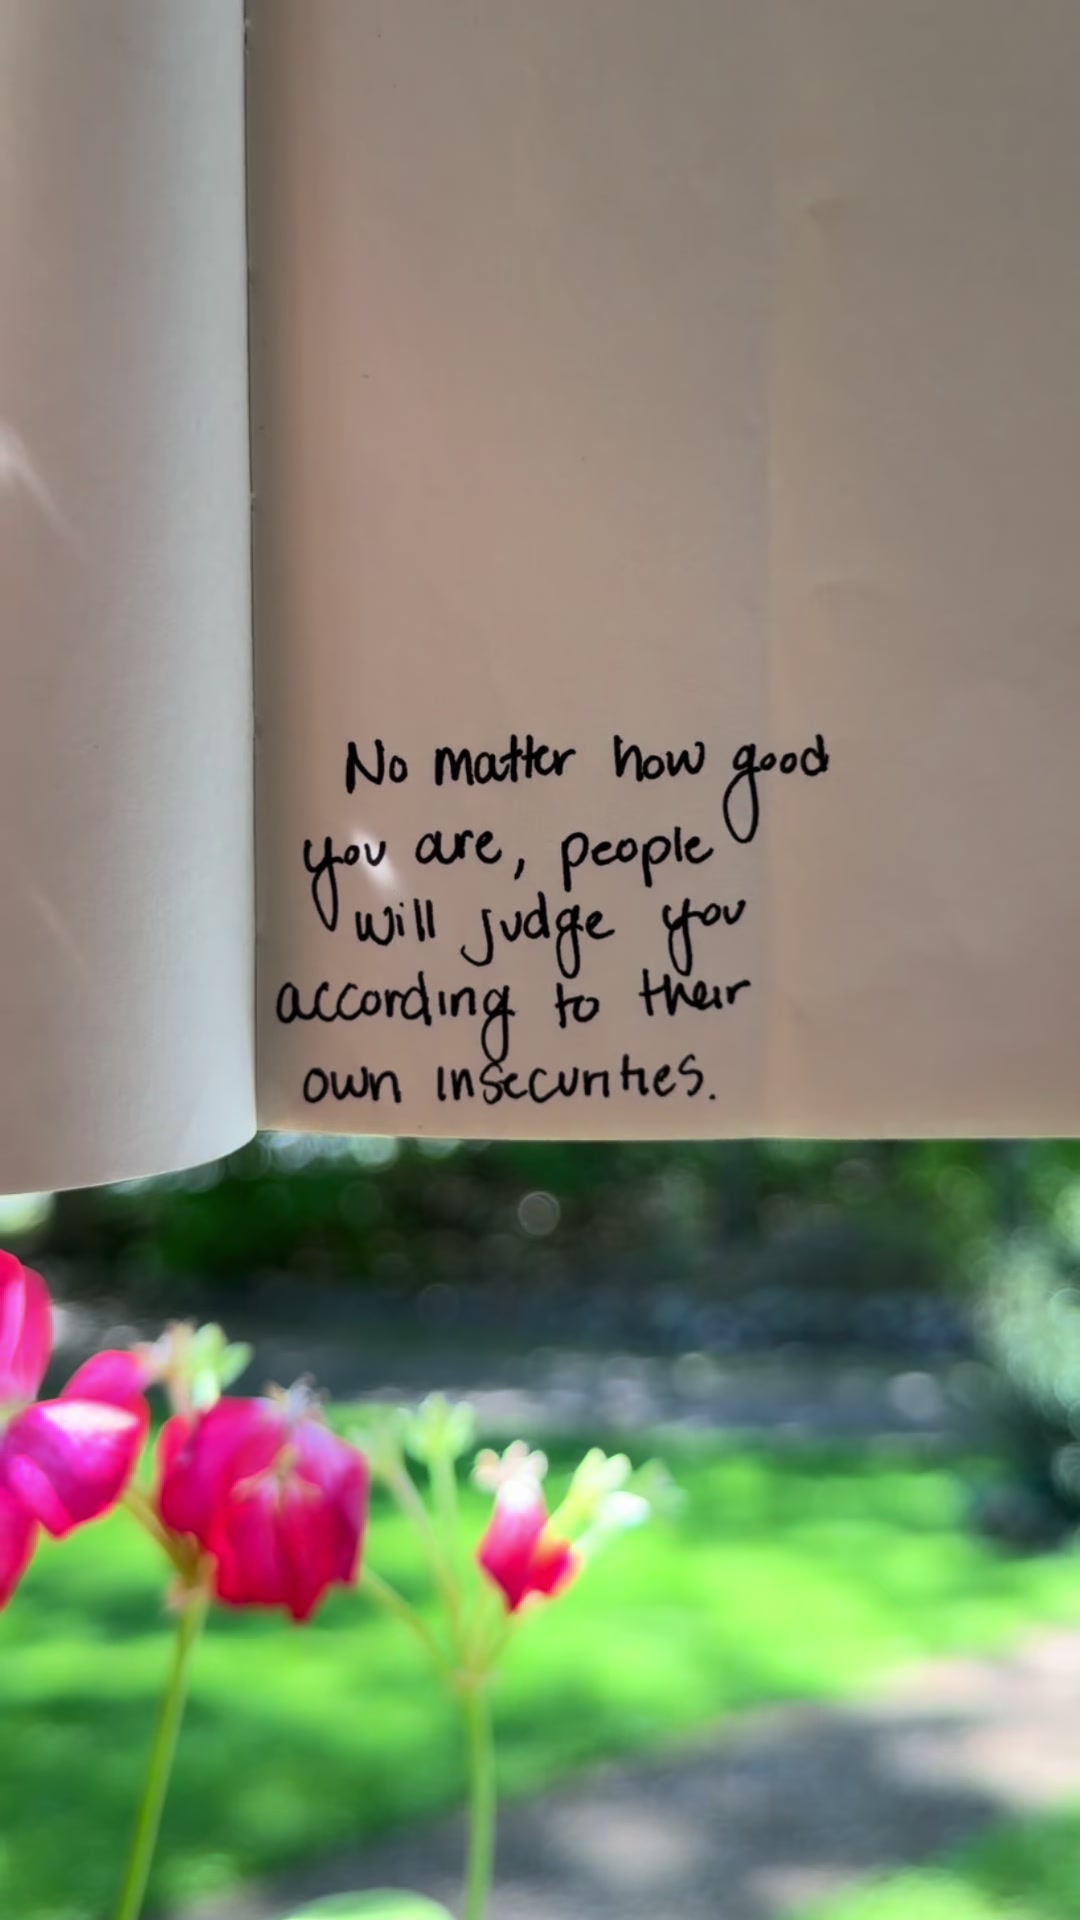 No matter how good
you are, people
will judge you
according to their
own insecurities.